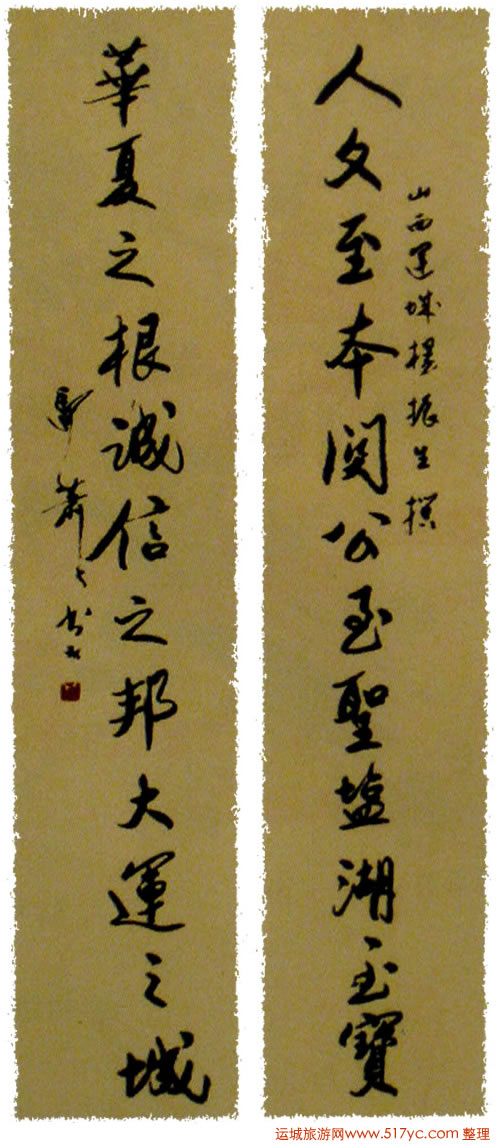 山西運城權振生撰
人文至本関公至聖盐湖至寶
華夏之根誠信之邦大運之城
运城旅游网www.517yc.com 整理